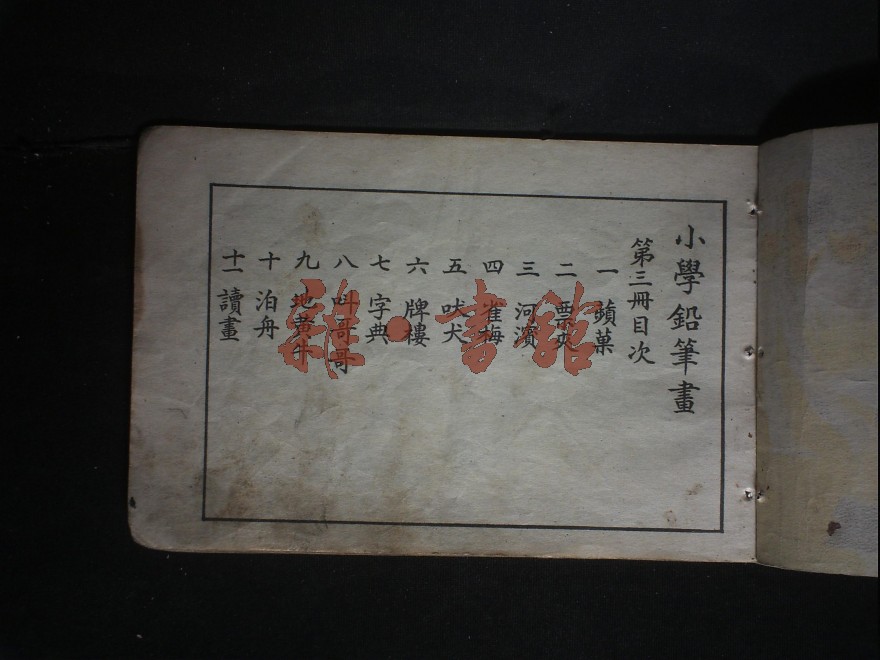 小學鉛筆畫
第三冊目次
一 蘋菓
二 票夾
三 河濱
四 雀梅
五 吠犬
六 牌樓
七 字典
八 叫哥哥
九 地黃牛
十 泊舟
十一 讀畫
雜·書館